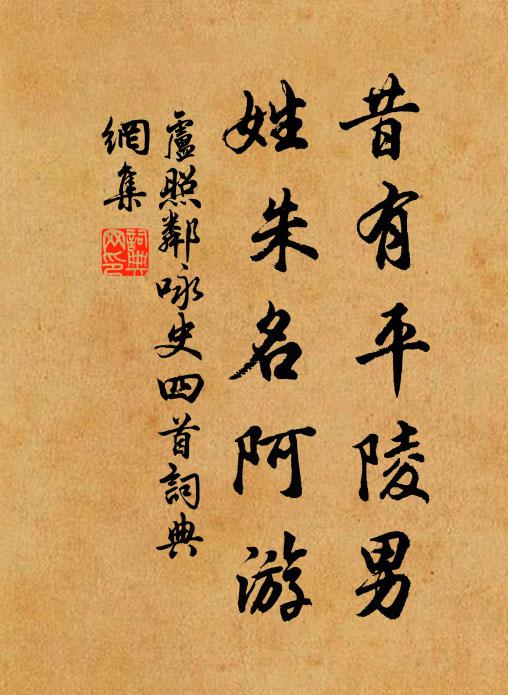 昔有平陵男
姓朱名阿游
盧照鄰咏史四首詞典
網集
詞典
网印